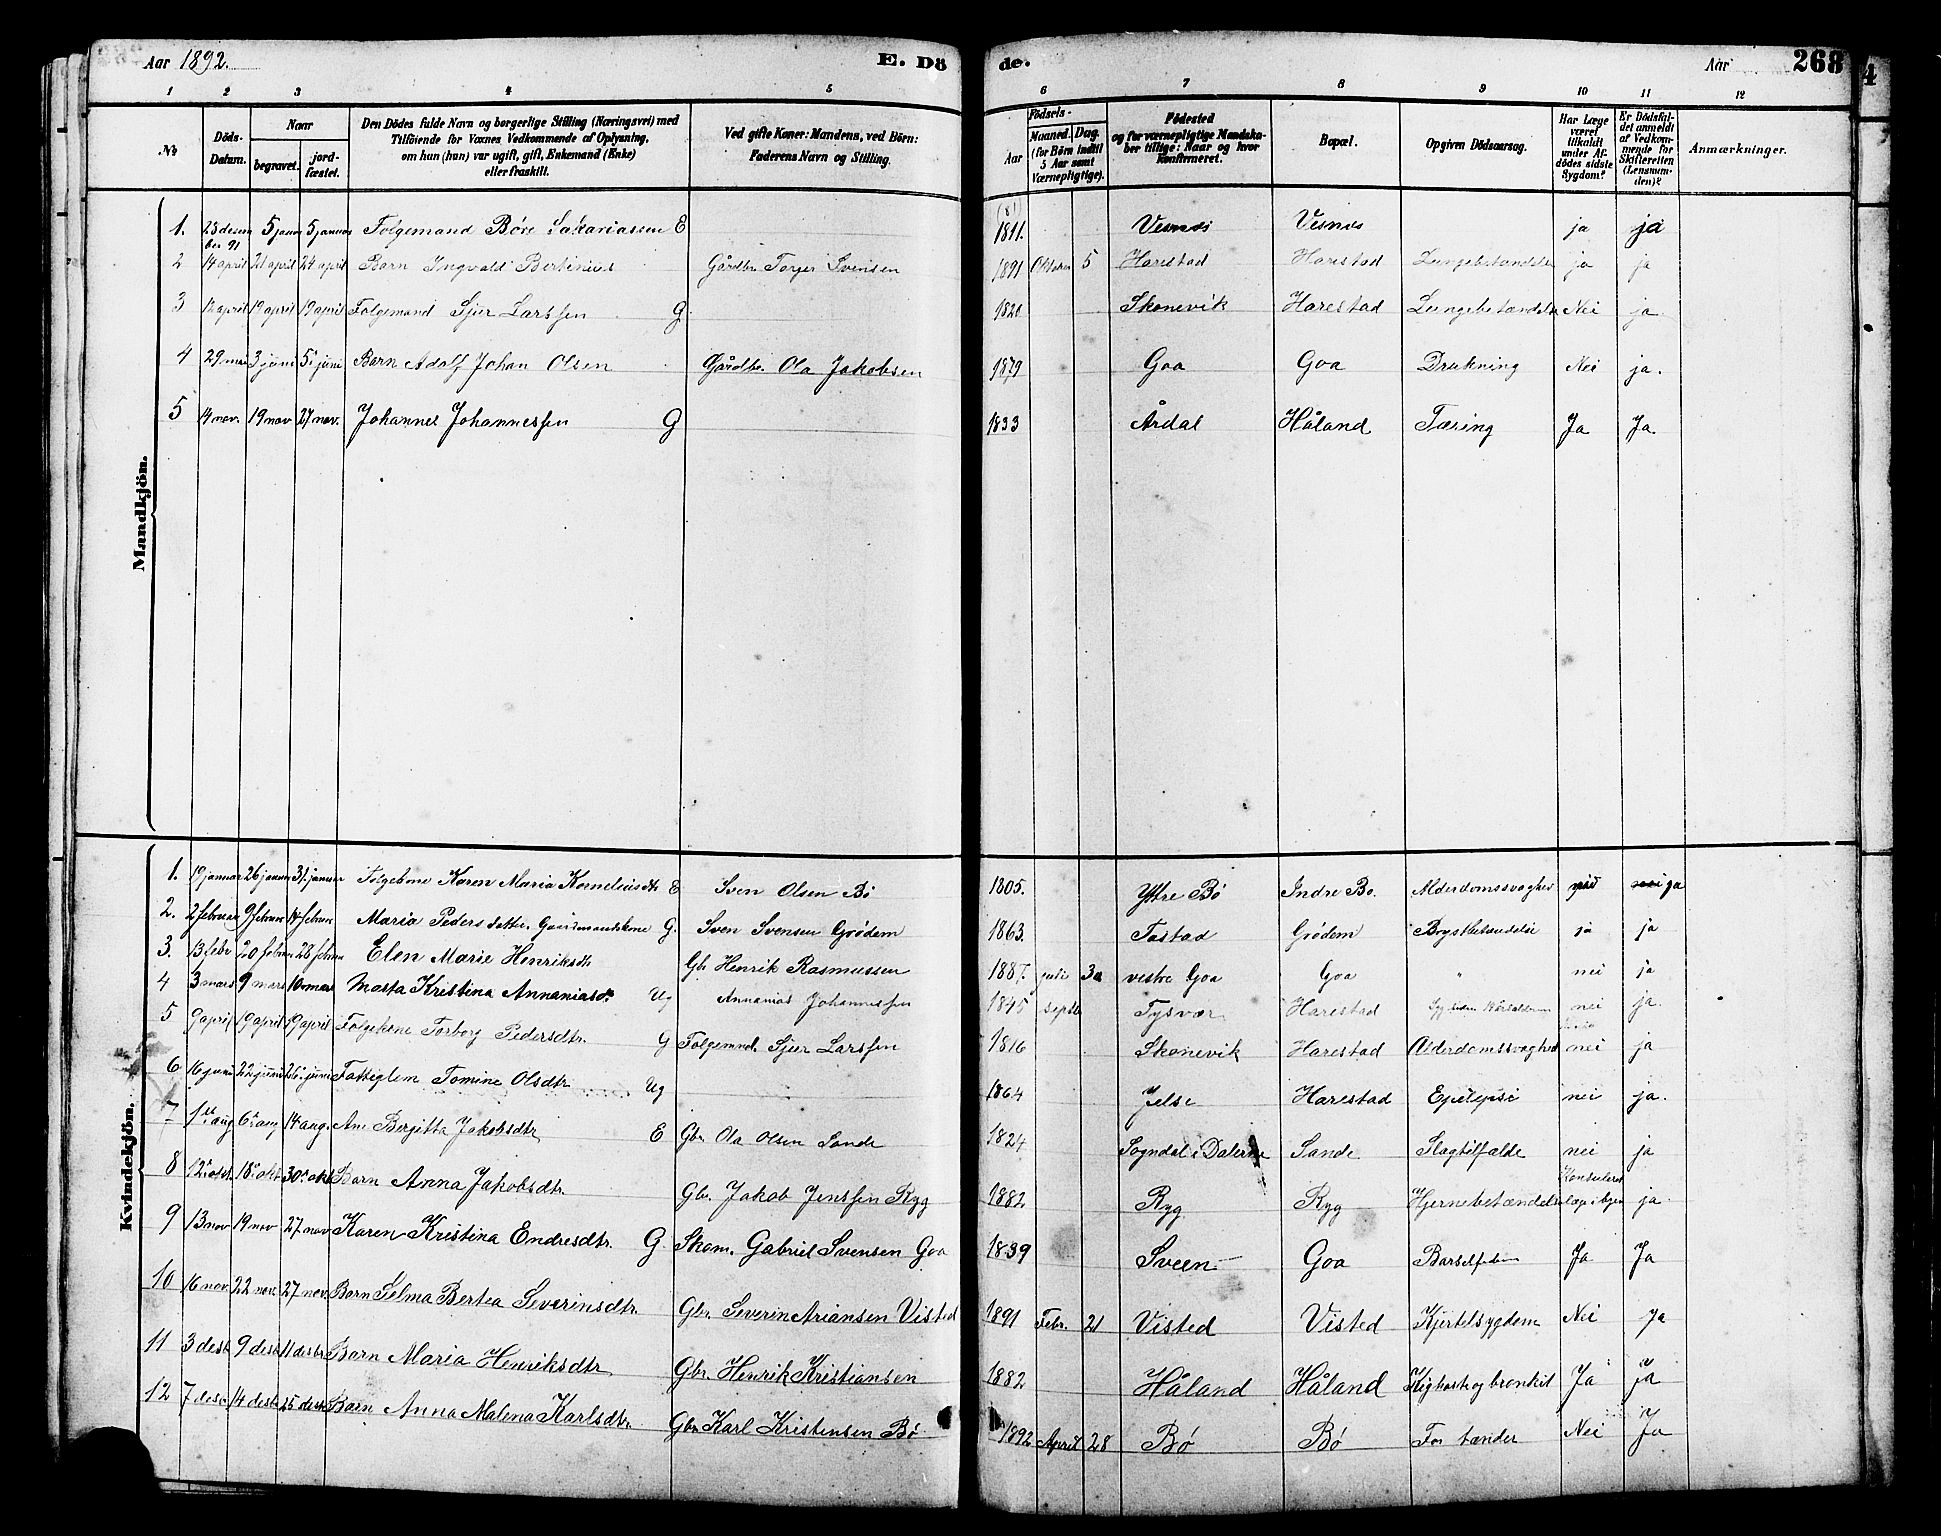 Aar 1892.
E. Dö
de.
Aar
268
1 2 3 4 5 6 7 8 9 10 11 12
No
Döds-Datum.
Naar
begravet.
jord-fæstet.
Den Dödes fulde Navn og borgerlige Stilling (Næringsvei) med
Tilföiende for Voxnes Vedkommende af Oplysning,
om han (hun) var ugift, gift, Enkemand (Enke)
eller fraskilt.
Ved gifte Koner: Mandens, ved Börn:
Faderens Navn og Stilling.
Födsels-
Aar
Maaned. Dag.
(for Börn indtil
5 Aar samt
Værnepligtige).
Födested
og for værnepligtige Mandska-
ber tillige: Naar og hvor
konfirmeret.
Bopæl.
Opgiven Dödsaarsag.
Har Læge
været
tilkaldt
under Af-
dödes sidste
Sygdom?
Er Dödsfal-
det anmeldt
af Vedkom-
mende for
Skifteretten
(Lensman-
den)?
Anmærkninger.
Mandkjön.
1. 25 desember 91 5 januar 5 januar Følgemand Børe Sakariassen E (81) 1811. Vesnes Vesnes ja ja
2 14 april 21 april 24 april Barn Ingvald Bertinius Gårdbr. Torger Svensen 1891 Oktober 5 Harestad Harestad Lungebetændelse ja ja
3 12 april 19 april 19 april Følgemand Sjur Larssen G 1820 Skonevik Harestad Lungebetændelse Nei ja
4 29 mai 3 juni 5 juni Barn Adolf Johan Olsen Gårdbr. Ola Jakobsen 1879 Goa Goa Drukning Nei ja.
5 14 nov. 19 nov 27 nov. Johannes Johannessen G 1833 Årdal Håland Tæring Ja Ja.
Kvindekjön.
1. 19 januar 26 januar 31. januar Følgekone Karen Maria Kornelius dtr E Sven Olsen Bø 1805. Yttre Bø Indre Bø. Alderdomssvaghed ja
2. 2 februar 9 februar 14 februar Maria Pedersdatter. Gaardmandskone G. Sven Svensen Grødem 1863. Tastad Grødem Brystbetændelse ja ja
3. 13 febr 20 februar 28 februar Elen Marie Henriksdtr Gbr Henrik Rasmussen 1887. juli 30 vestre Goa Goa " nei ja
4 3 mars 9 mars 10 mars Marta Kristina Annaniasdtr Ug Annanias Johannessen 1845 septb Tysvær Harestad nei ja.
5 9 april 19 april 19 april Følgekone Torborg Pedersdtr. G Følgemnd. Sjur Larssen 1816 Skonevik Harestad Alderdomssvaghed nei ja
6 16 juni 22 juni 26. juni Fattiglem Tomine Olsdtr Ug 1864 Jelse Harestad Epilepsi nei ja.
7 1 aug 6 aug 14 aug. Ane Bergitta Jakobsdtr E Gbr Ola Olsen Sande 1824 Sogndal i Dalerne Sande Slagtilfælde nei ja
8 12 okt. 18 okt 30 okt Barn Anna Jakobsdtr. Gbr. Jakob Jenssen Ryg 1882 Ryg Ryg Hjernebetændelse Konsuleret læge ja.
9 13 nov 19 nov 27. nov Karen Kristina Endresdtr. G. Skom. Gabriel Svensen Goa 1839 Sveen Goa Barselfeber Ja Ja
10 16 nov 22 nov. 27 nov. Barn Selma Bertea Severinsdtr Gbr. Severin Ariansen Visted 1891 Febr. 21 Visted Visted Kjertelsygdom Nei Ja
11 3 desb 9 desb 11 desbr Barn Maria Henriksdtr Gbr. Henrik Kristiansen 1882 Håland Håland Kighoste og bronkit Ja Ja
12 7 desb 14 desb 25 desb Barn Anna Malena Karlsdtr. Gbr Karl Kristensen Bø 1892 April 28 Bø Bø For tænder Nei Ja